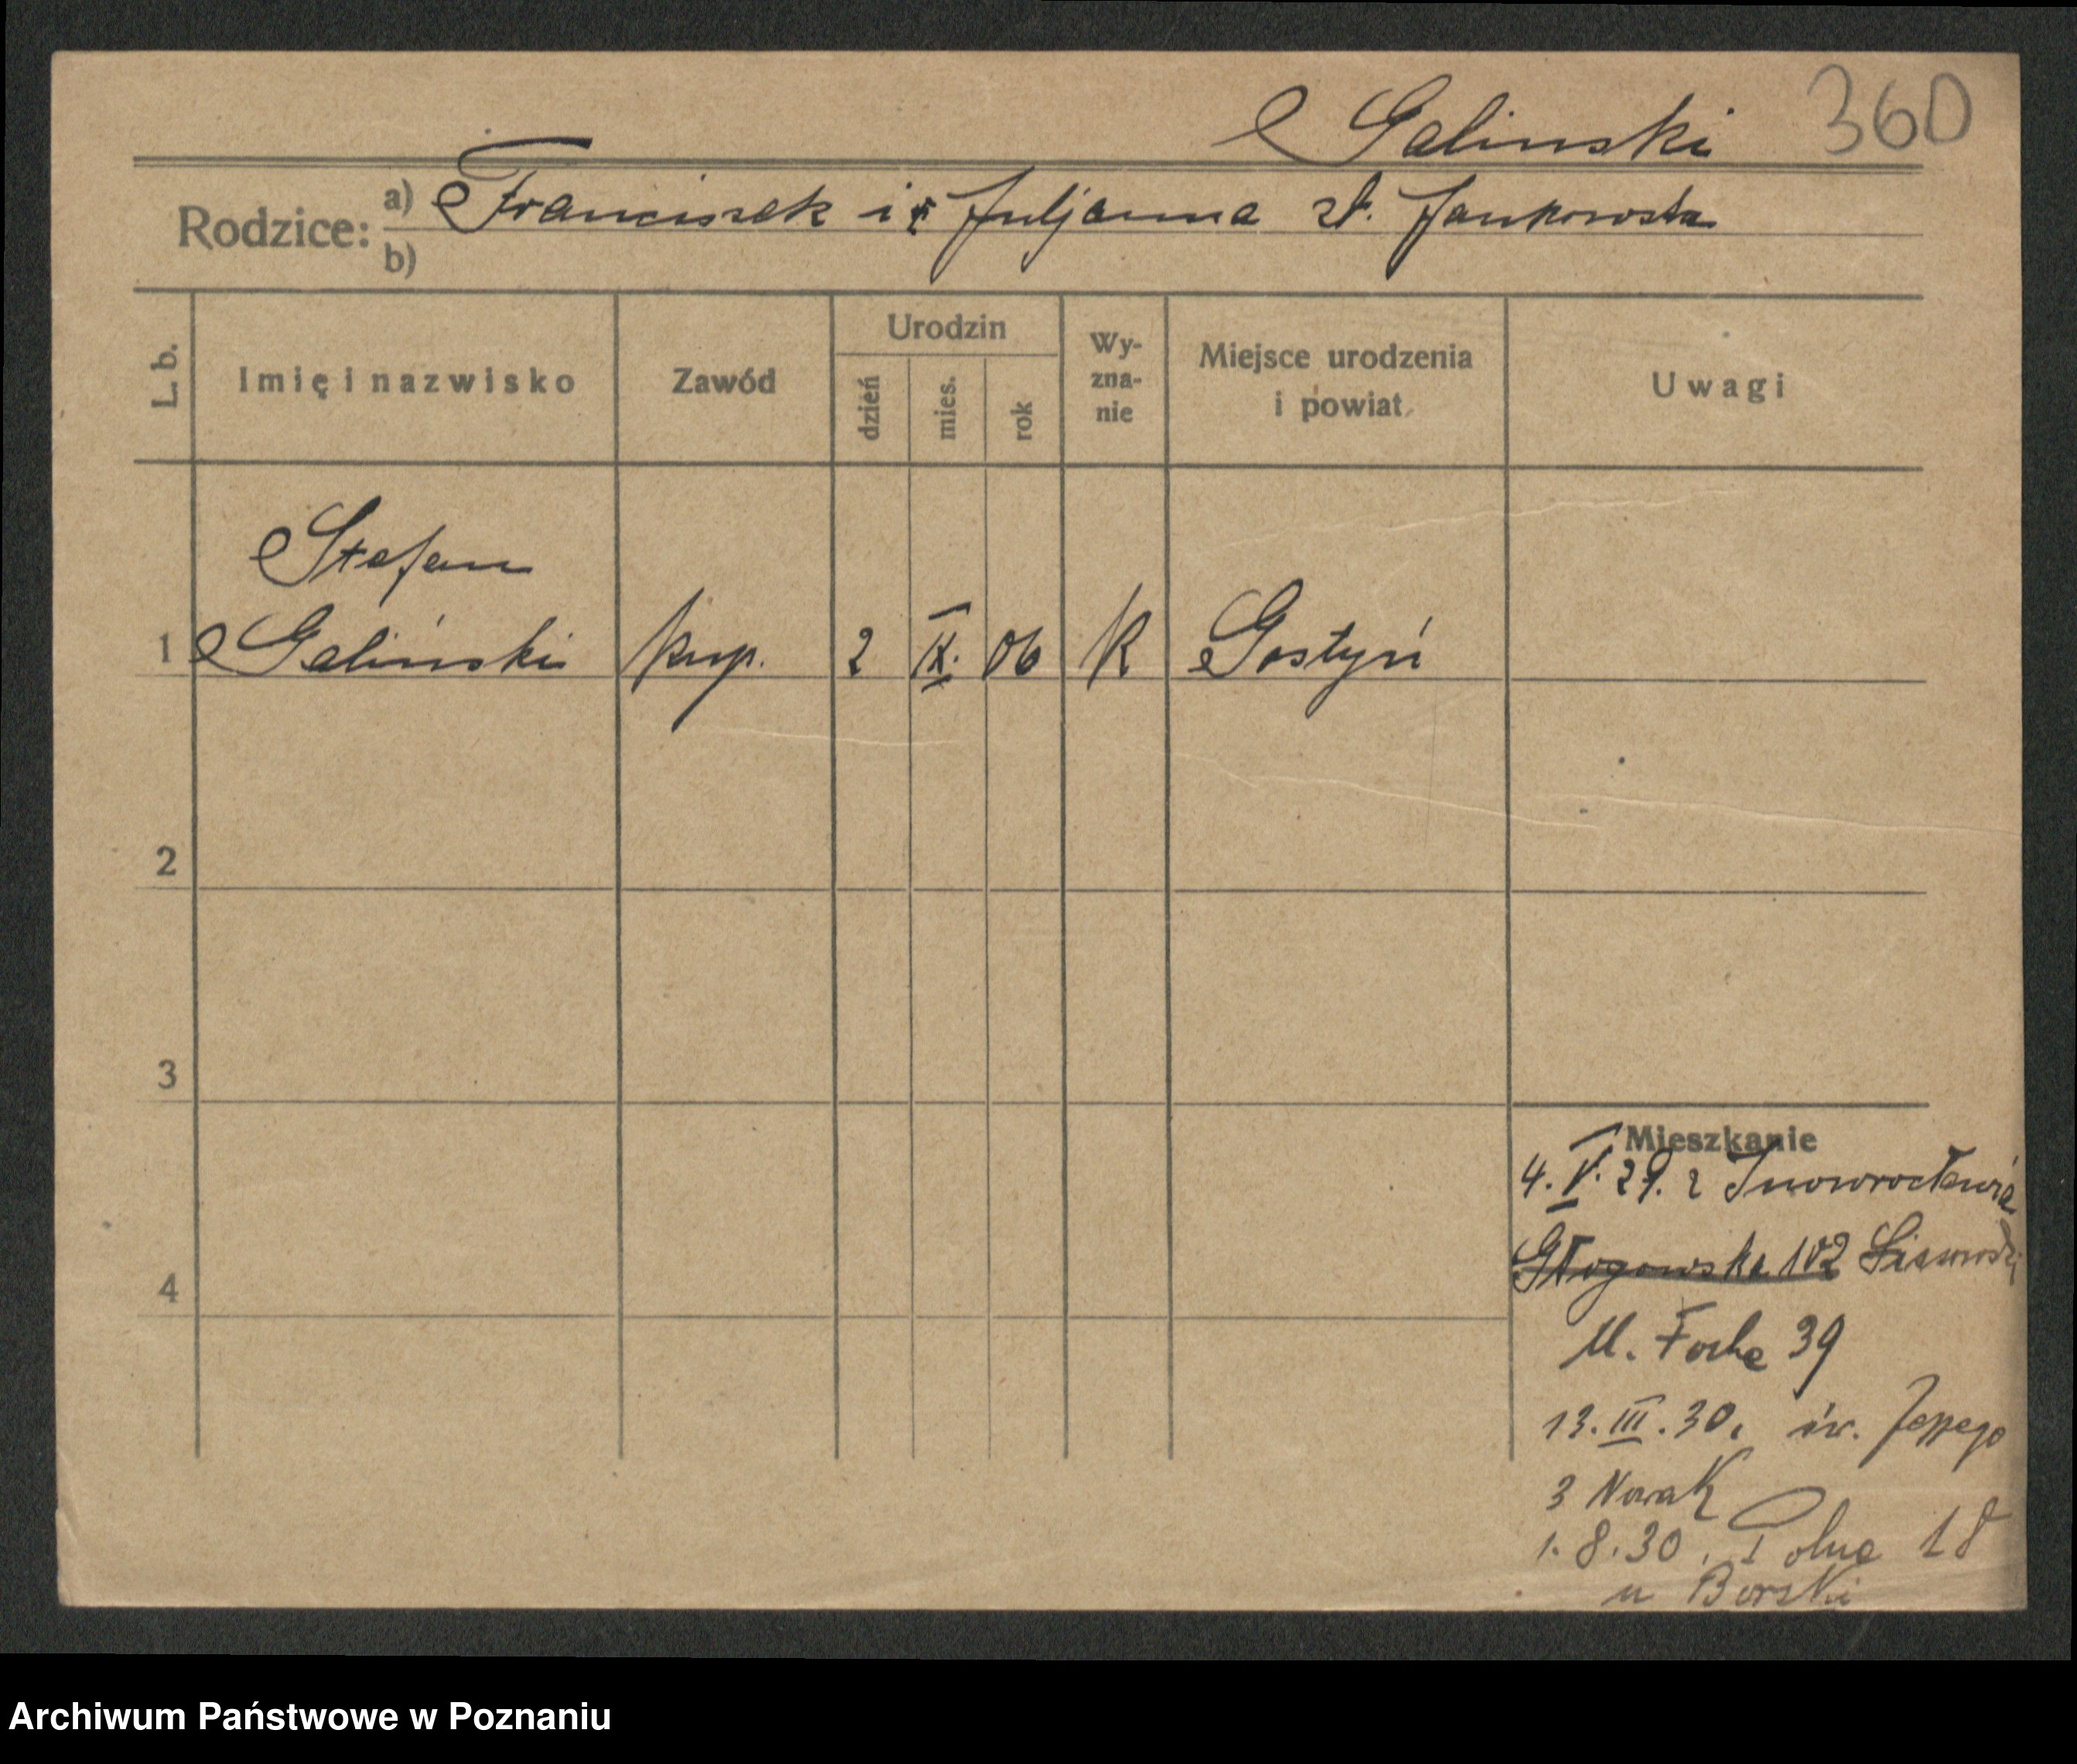 Galinski 360
Rodzice: a) Franciszek i Juljanna zd. Jankowska
b)
L. b. Imię i nazwisko Zawód Urodzin dzień mies. rok Wy-zna-nie Miejsce urodzenia i powiat Uwagi
Stefan
1 Galiński kup. 2 IX. 06 K Gostyń
2
3
Mieszkanie
4. V. 29. z Inowrocławia
Głogowska 102
4
M. Focha 39
13. III. 30. św. Józefa
3 Nowak
1. 8. 30. Polna 18
u Borski
Archiwum Państwowe w Poznaniu